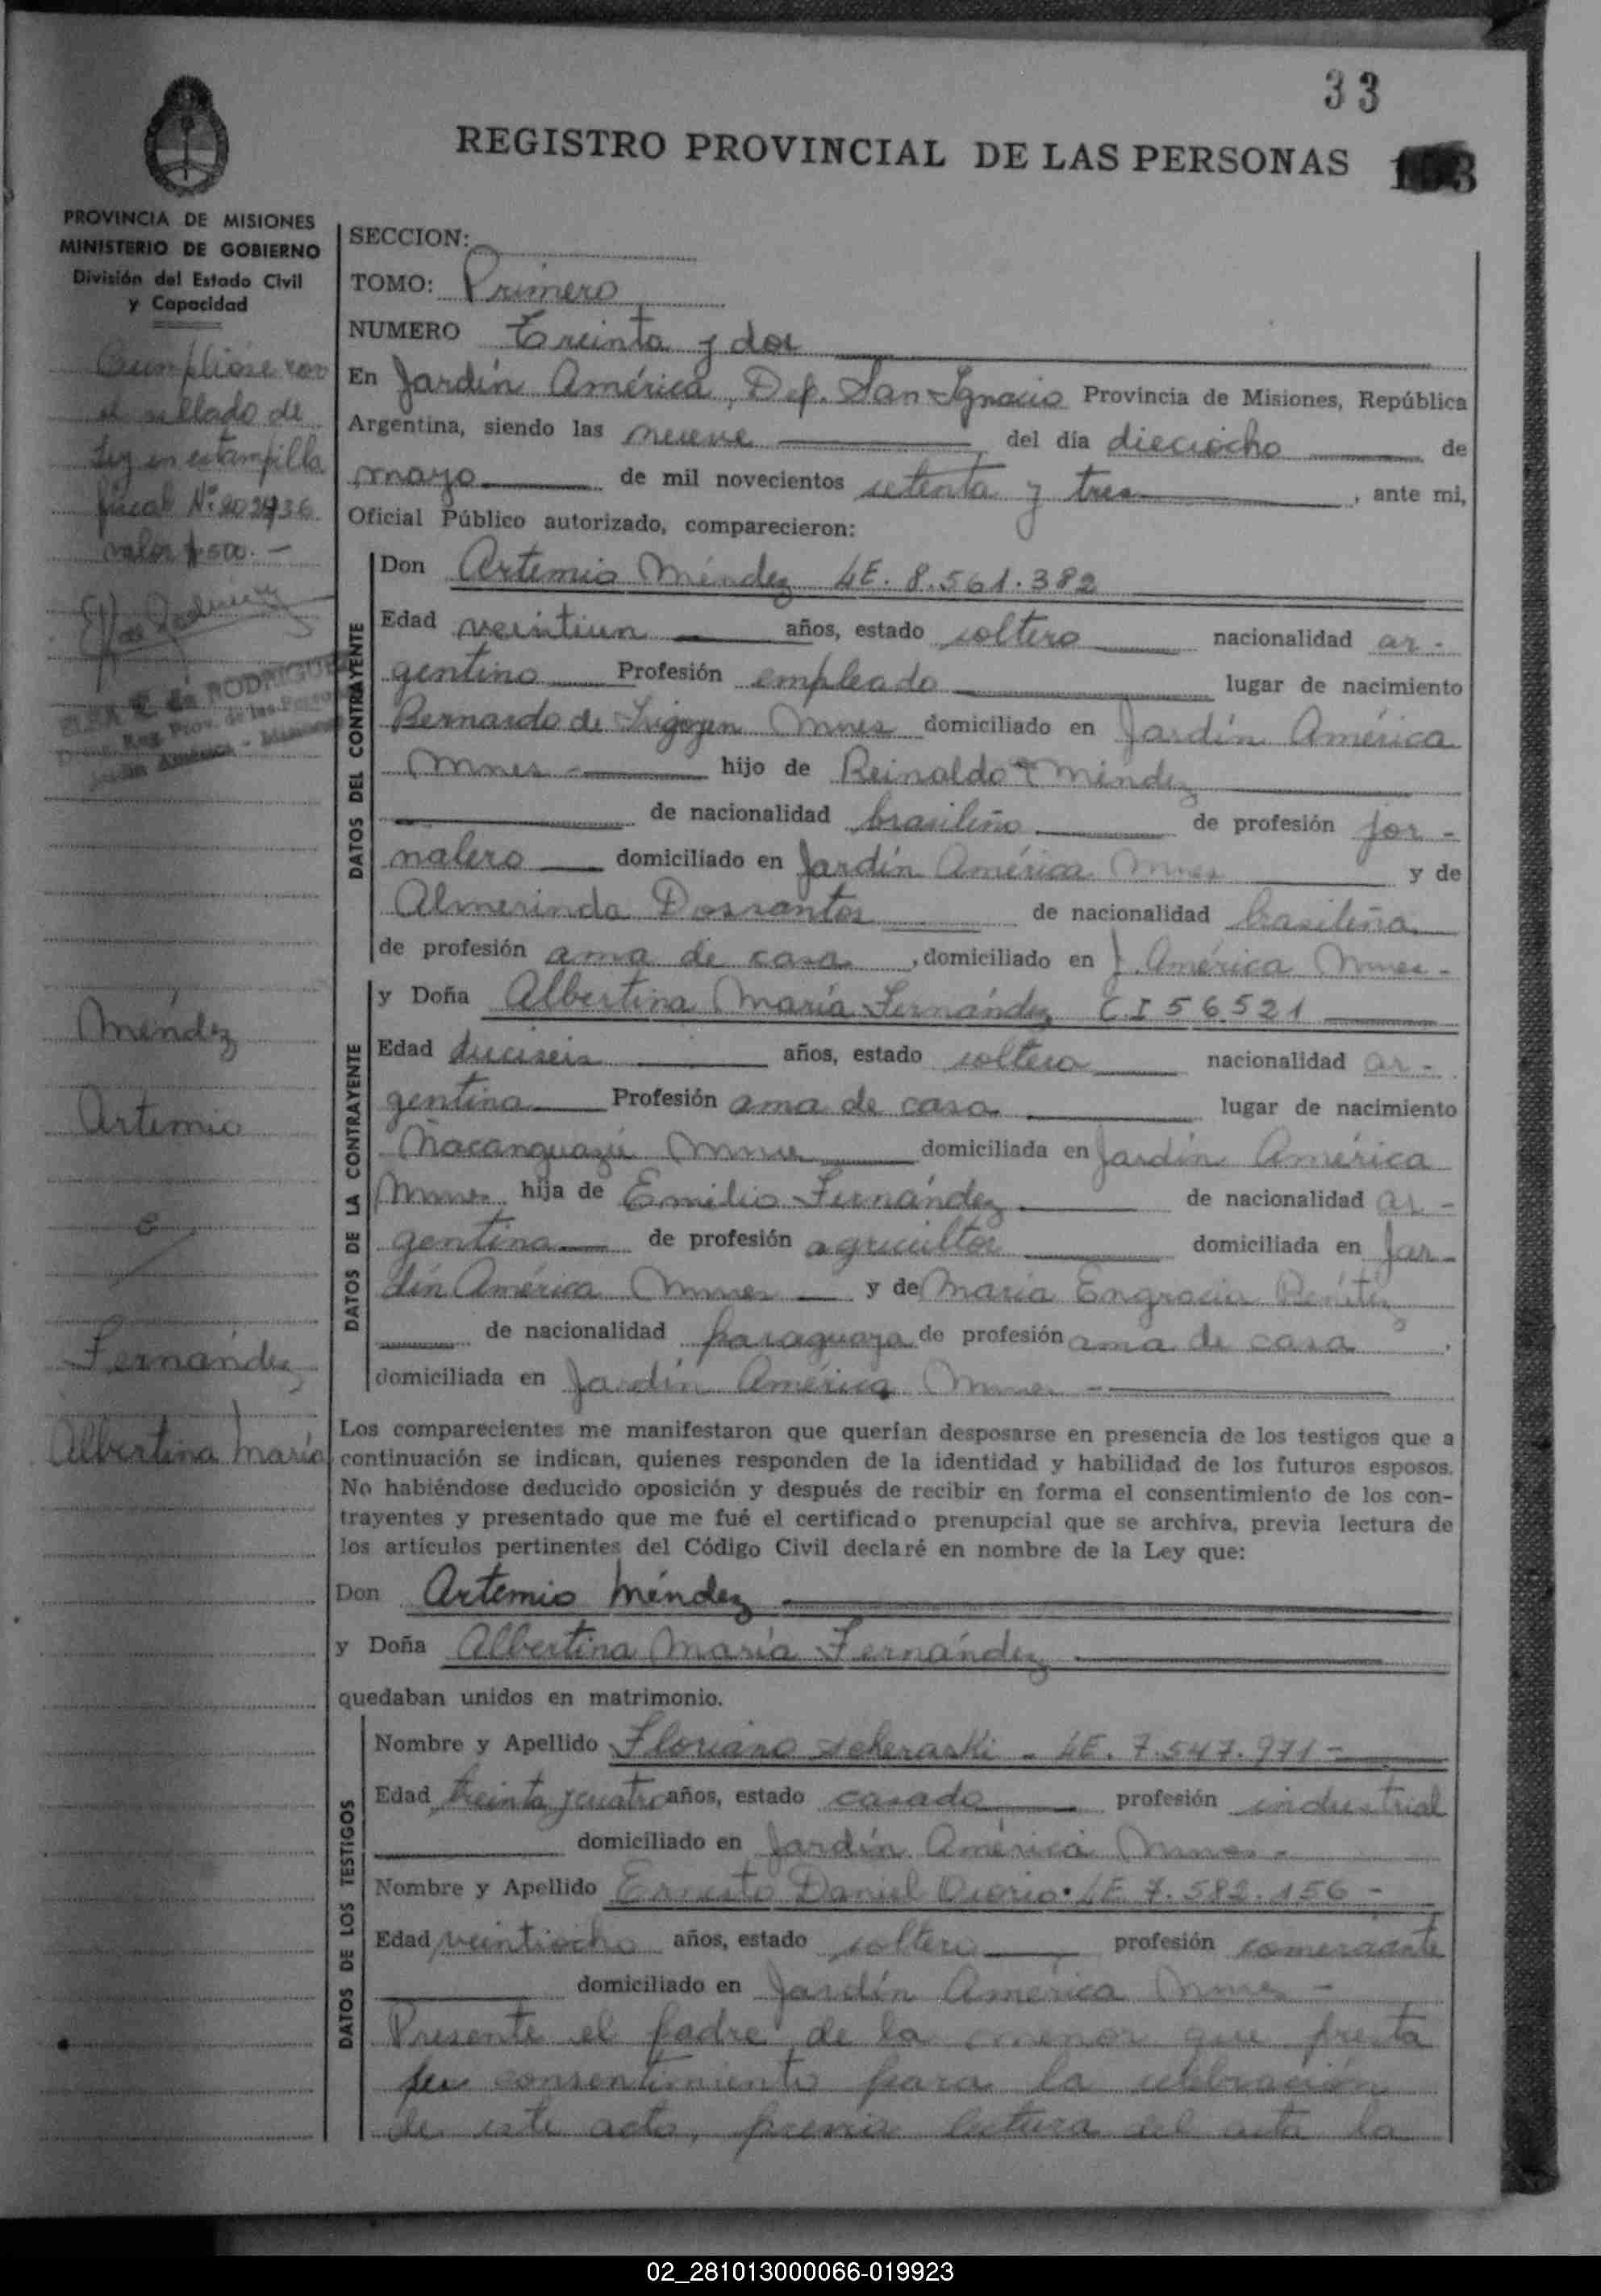 33
REGISTRO PROVINCIAL DE LAS PERSONAS
PROVINCIA DE MISIONES
MINISTERIO DE GOBIERNO
División del Estado Civil
y Capacidad
Cumplióse con
el sellado de
Ley en estampilla
fiscal Nº
valor $ 500.-
RODRIGUE
Reg. Prov. de las
Jardín América - Misiones
Méndez
Artemio
e
Fernández
Albertina María
SECCION:
TOMO: Primero
NUMERO Treinta y dos
En Jardín América, Dep. San Ignacio Provincia de Misiones, República
Argentina, siendo las nueve del día dieciocho de
mayo de mil novecientos setenta y tres, ante mi,
Oficial Público autorizado, comparecieron:
DATOS DEL CONTRAYENTE
Don Artemio Méndez LE. 8.561.382
Edad veintiun años, estado soltero nacionalidad ar-
gentino Profesión empleado lugar de nacimiento
Bernardo de Irigoyen Mnes domiciliado en Jardín América
Mnes - hijo de Reinaldo Méndez
de nacionalidad brasileño de profesión jor-
nalero domiciliado en Jardín América Mnes y de
Almerinda Dossantos de nacionalidad brasileña
de profesión ama de casa, domiciliado en J. América Mnes-
DATOS DE LA CONTRAYENTE
y Doña Albertina María Fernández C.I 56521
Edad dieciseis años, estado soltera nacionalidad ar-
gentina Profesión ama de casa lugar de nacimiento
Ñacanguazú Mnes domiciliada en Jardín América
Mnes hija de Emilio Fernández de nacionalidad ar-
gentina de profesión agricultor domiciliada en Jar-
dín América Mnes y de María Engracia Benítez
de nacionalidad paraguaya de profesión ama de casa,
domiciliada en Jardín América Mnes -
Los comparecientes me manifestaron que querían desposarse en presencia de los testigos que a
continuación se indican, quienes responden de la identidad y habilidad de los futuros esposos.
No habiéndose deducido oposición y después de recibir en forma el consentimiento de los con-
trayentes y presentado que me fué el certificado prenupcial que se archiva, previa lectura de
los artículos pertinentes del Código Civil declaré en nombre de la Ley que:
Don Artemio Méndez
y Doña Albertina María Fernández
quedaban unidos en matrimonio.
DATOS DE LOS TESTIGOS
Nombre y Apellido Floriano Scheraski - LE. 7.547.971-
Edad treinta y cuatro años, estado casado profesión industrial
domiciliado en Jardín América Mnes -
Nombre y Apellido Ernesto Daniel LE 7.582.156 -
Edad veintiocho años, estado soltero profesión comerciante
domiciliado en Jardín América Mnes -
Presente el padre de la menor que presta
su consentimiento para la celebración
de este acto, previa lectura del acta la
02_281013000066-019923